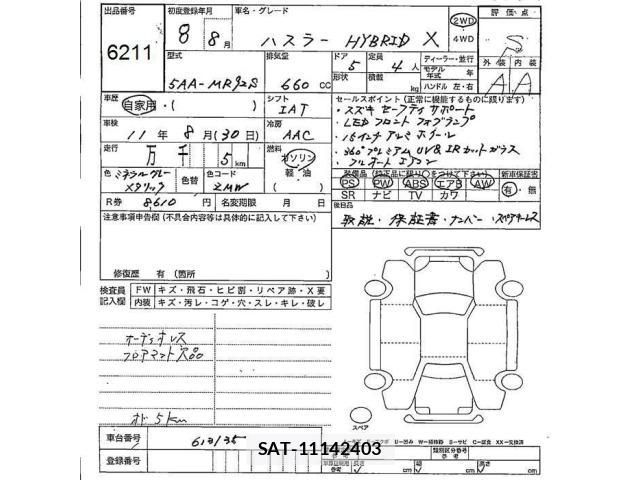 出品番号 初度登録年月 車名・グレード 評価点
6211 8 8月 ハスラー HYBRID X 2WD 4WD S
型式 排気量 ドア 定員 ディーラー・並行 外装 内装
5AA-MR92S 660cc 5 4人 形状 積載 kg モデル年式 年 ハンドル 左・右 A A
車歴 シフト セールスポイント(正常に機能するものに限ります)
自家用・( ) IAT ・スズキ セーフティサポート
・LED フロントフォグランプ
車検 冷房 ・15インチ アルミホイール
11年 8月(30日) AAC ・360°プレミアムUV&IRカットガラス
走行 燃料 ・フルオートエアコン
万 千 5km ガソリン 軽油
装備品(純正品に限り○をつけて下さい) 新車保証書
色 ミネラルグレーメタリック 色替 色コード ZMW
PS PW ABS エアB AW 有・無
SR ナビ TV カワ
R券 8610円 名変期限 月 日
後日品
取説・保証書・ナンバー・スペアキーレス
注意事項申告欄(不具合内容等は具体的に記入して下さい)
修復歴 有(箇所
検査員記入欄 FW キズ・飛石・ヒビ割・リペア跡・X要
内装 キズ・汚レ・コゲ・穴・スレ・キレ・破レ
オーディオレス
フロアマット欠品
オド5km
スペア
車台番号 613135
SAT-11142403
登録番号
類別区分番号
長さ cm 幅 cm 高さ cm